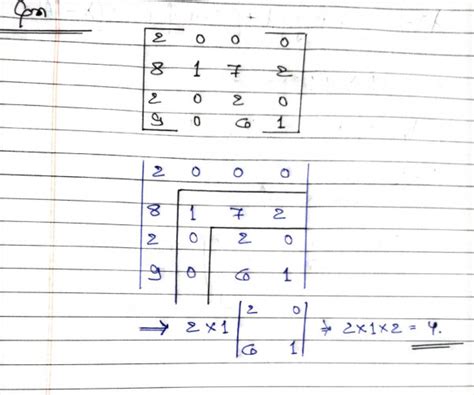 Que
2 0 0 0
8 1 7 2
2 0 2 0
9 0 6 1
2 0 0 0
8 1 7 2
2 0 2 0
9 0 6 1
→ 2×1 |2 0| ⇒ 2×1×2 = 4.
6 1